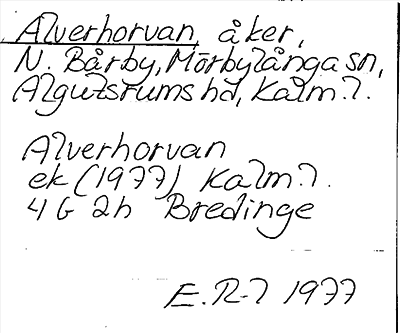 Alverhorvan, åker,
N. Bårby, Mörbylånga sn,
Algutsrums hd, Kalm. l.
Alverhorvan
ek (1977) Kalm. l.
4 G 2h Bredinge
E. R-l 1977